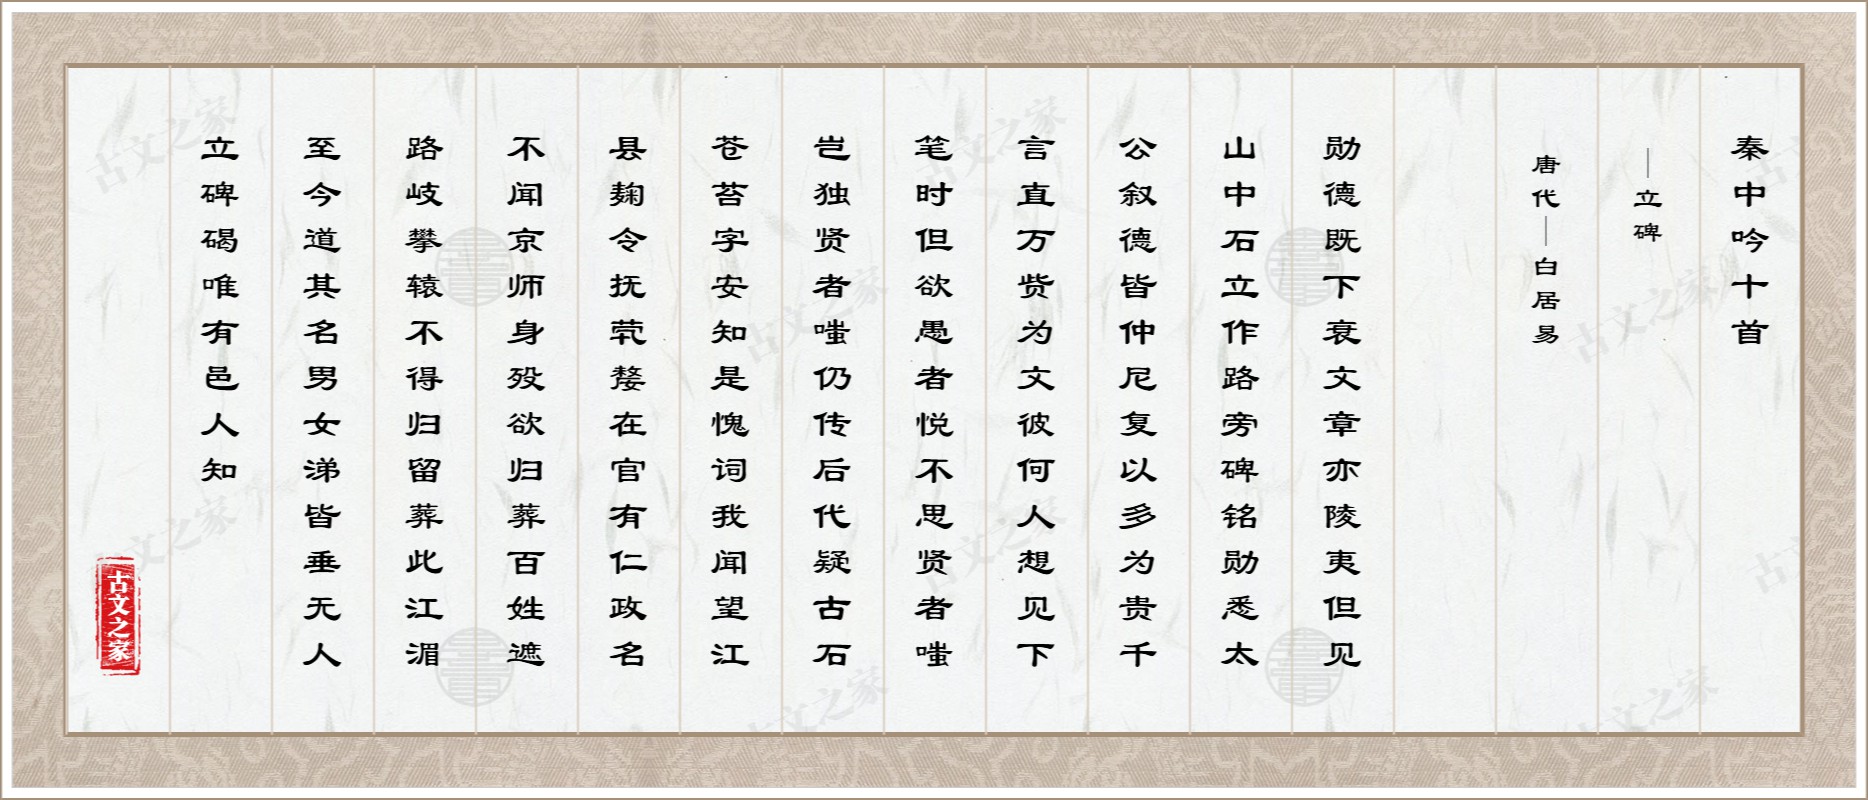 秦中吟十首
—立碑
唐代—白居易
勋德既下衰文章亦陵夷但见
山中石立作路旁碑铭勋悉太
公叙德皆仲尼复以多为贵千
言直万赀为文彼何人想见下
笔时但欲愚者悦不思贤者嗤
岂独贤者嗤仍传后代疑古石
苍苔字安知是愧词我闻望江
县麹令抚茕嫠在官有仁政名
不闻京师身殁欲归葬百姓遮
路岐攀辕不得归留葬此江湄
至今道其名男女涕皆垂无人
立碑碣唯有邑人知
古文之家